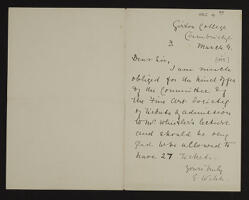 Girton College
Cambridge
March 4.
Dear Sir,
I am much
obliged for the kind offer
of the Committee of
the Fine Art Society
of tickets of admission
to Mr Whistler's lecture
and should be very
glad to be allowed to
have 27 tickets.
Yours truly
E. Welsh